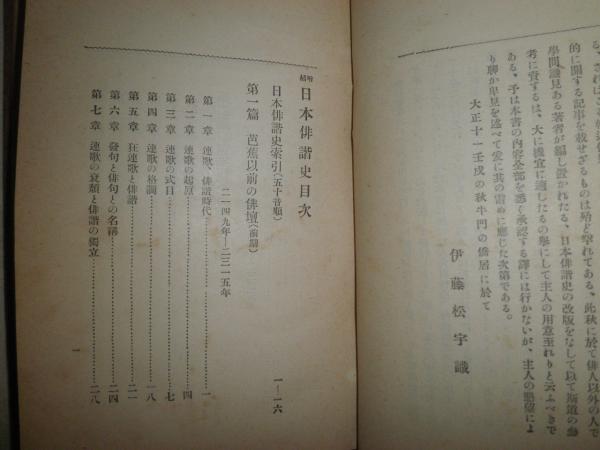 る、されはこ
的に關する記事を載せざるものは殆ど罕れである、此秋に於て俳人以外の人で
學問識見ある著者が編し置かれたる、日本俳諧史の改版をなして以て斯道の參
考に資するは、大に機宜に適したるの擧にして主人の用意至れりと云ふべきで
ある、予は本書の内容全部を悉く承認する譯には行かないが、主人の懇望によ
り聊か卑見を述べて爰に其の責めに應じた次第である。
大正十一壬戌の秋牛門の僑居に於て
伊藤松宇識
日本俳諧史目次
日本俳諧史索引(五十音順)…一—一六
第一篇 芭蕉以前の俳壇(前期)
二一四九年—二三一五年
第一章 連歌、俳諧時代…一
第二章 連歌の起原…四
第三章 連歌の式目…七
第四章 連歌の格調…八
第五章 狂連歌と俳諧…二一
第六章 發句と俳句との名稱…二四
第七章 連歌の衰頽と俳諧の獨立…二八
一